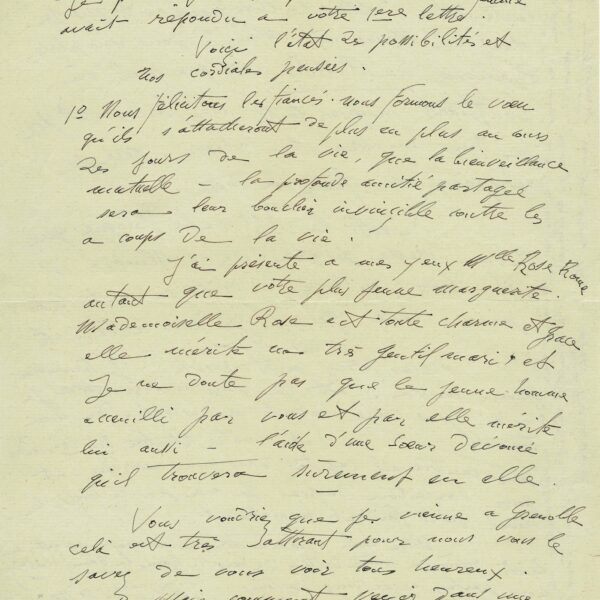 avait répondu a votre 1ere lettre.
Voici l'état des possibilités et
nos cordiales pensées.
1º Nous félicitons les fiancés. nous formons le vœu
qu'ils s'attacheront de plus en plus au cours
des jours de la vie, que la bienveillance
mutuelle – la profonde amitié partagée
sera leur bouclier invincible contre les
a coups de la vie.
J'ai présente a mes yeux Mlle Rose Rome
autant que votre plus jeune marguerite.
Mademoiselle Rose est toute charme et grace
elle mérite un très gentil mari, et
je ne doute pas que le jeune homme
accueilli par vous et par elle mérite
lui aussi – l'aide d'une sœur dévouée
qu'il trouvera sûrement en elle.
Vous voudriez que je vienne a Grenoble
celà est très attirant pour nous vous le
savez de vous voir tous heureux.
comment venir dans une